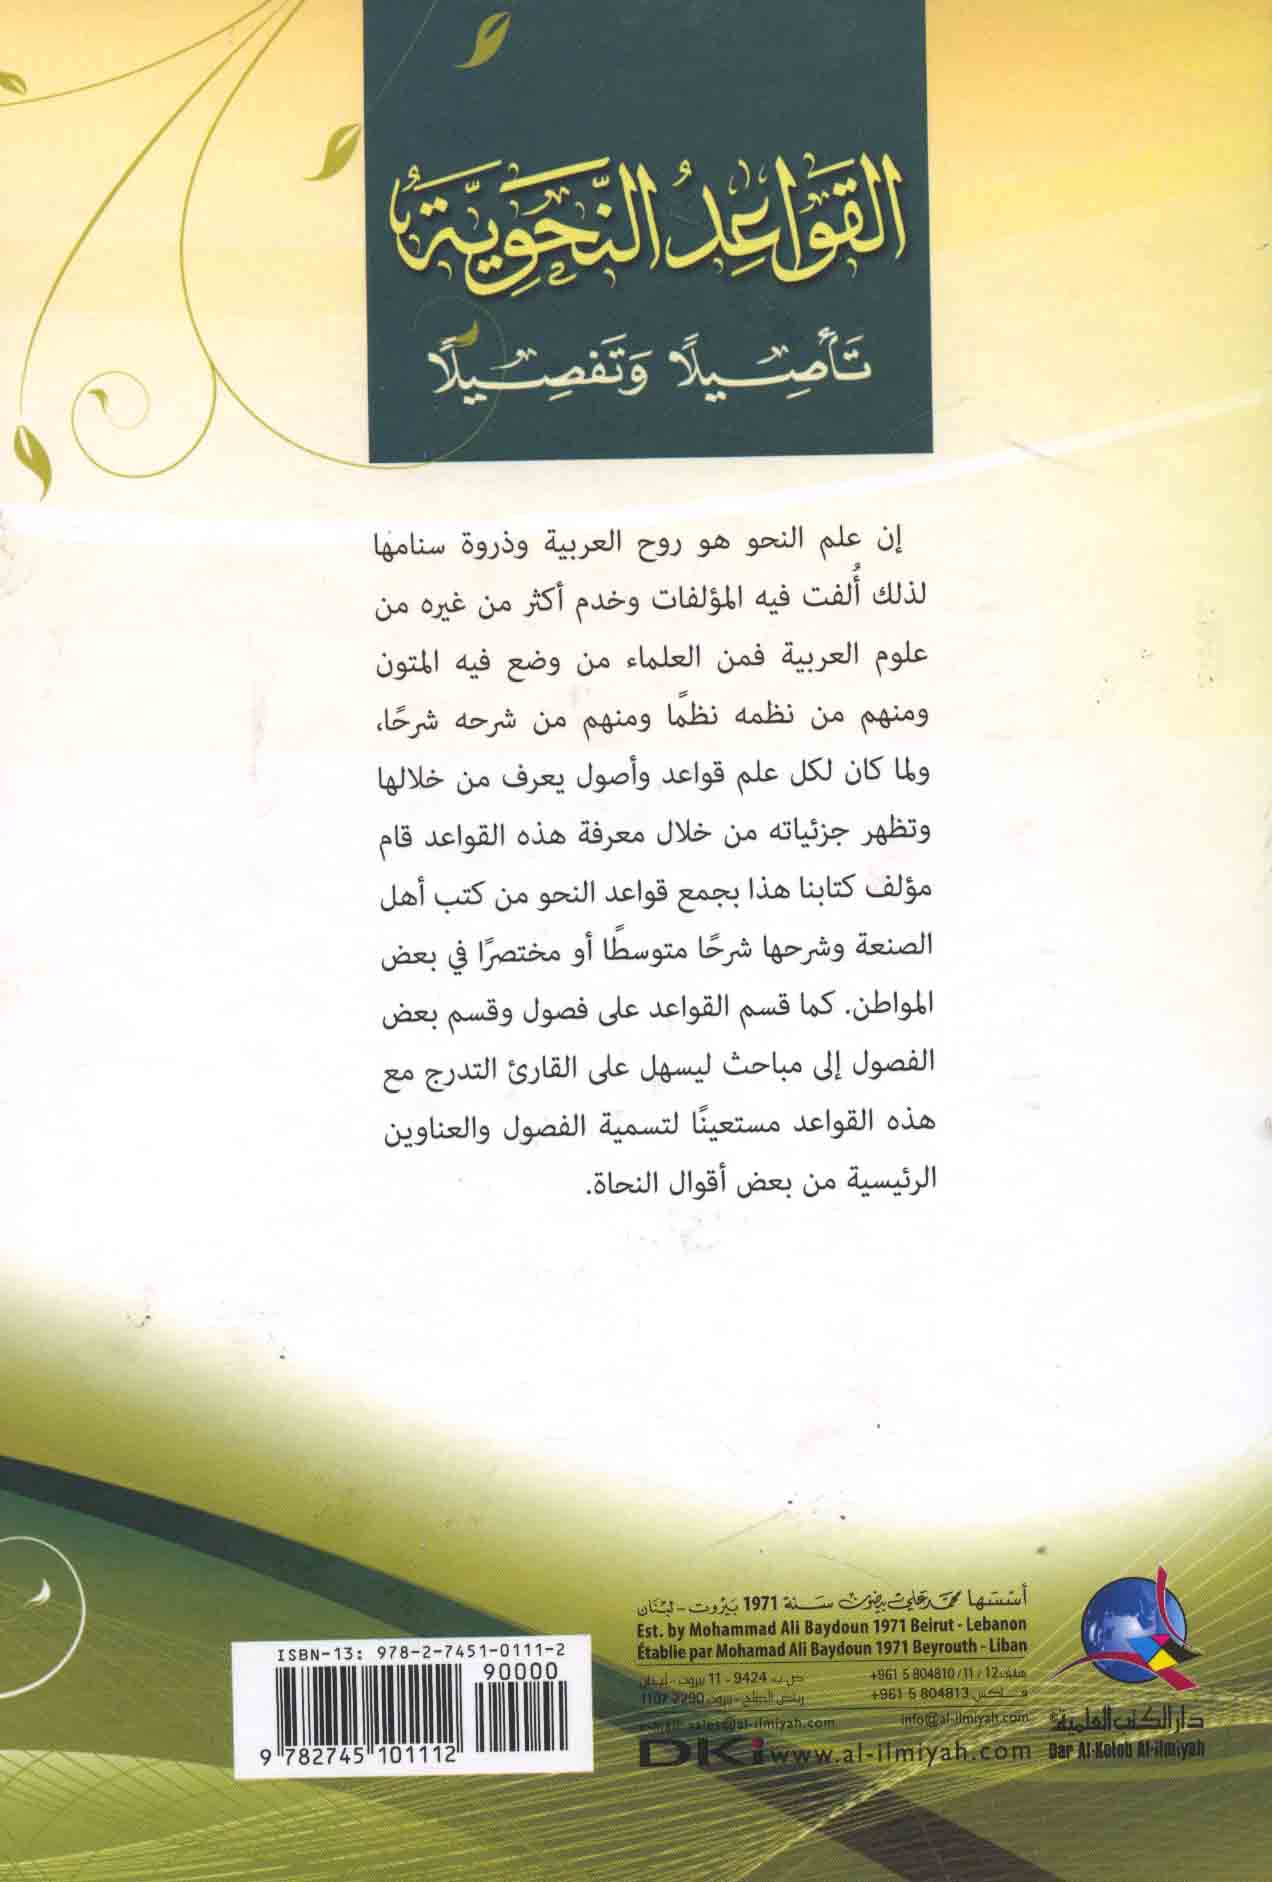 القَوَاعِدُ النَّحَوِيَّةُ
تَأصِيلًا وَتَفصِيلًا
إن علم النحو هو روح العربية وذروة سنامها
لذلك أُلفت فيه المؤلفات وخدم أكثر من غيره من
علوم العربية فمن العلماء من وضع فيه المتون
ومنهم من نظمه نظمًا ومنهم من شرحه شرحًا،
ولما كان لكل علم قواعد وأصول يعرف من خلالها
وتظهر جزئياته من خلال معرفة هذه القواعد قام
مؤلف كتابنا هذا بجمع قواعد النحو من كتب أهل
الصنعة وشرحها شرحًا متوسطًا أو مختصرًا في بعض
المواطن. كما قسم القواعد على فصول وقسم بعض
الفصول إلى مباحث ليسهل على القارئ التدرج مع
هذه القواعد مستعينًا لتسمية الفصول والعناوين
الرئيسية من بعض أقوال النحاة.
أسسها محمد علي بيضون سنة 1971 بيروت - لبنان
Est. by Mohammad Ali Baydoun 1971 Beirut - Lebanon
Établie par Mohamad Ali Baydoun 1971 Beyrouth - Liban
ص.ب 9424 - 11 بيروت - لبنان
رياض الصلح - بيروت 2290 1107
هاتف +961 5 804810 / 11 / 12
فاكس +961 5 804813
e-mail: sales@al-ilmiyah.com
info@al-ilmiyah.com
DKi www.al-ilmiyah.com
دار الكتب العلمية
Dar Al-Kotob Al-ilmiyah
ISBN-13: 978-2-7451-0111-2
90000
9 782745 101112